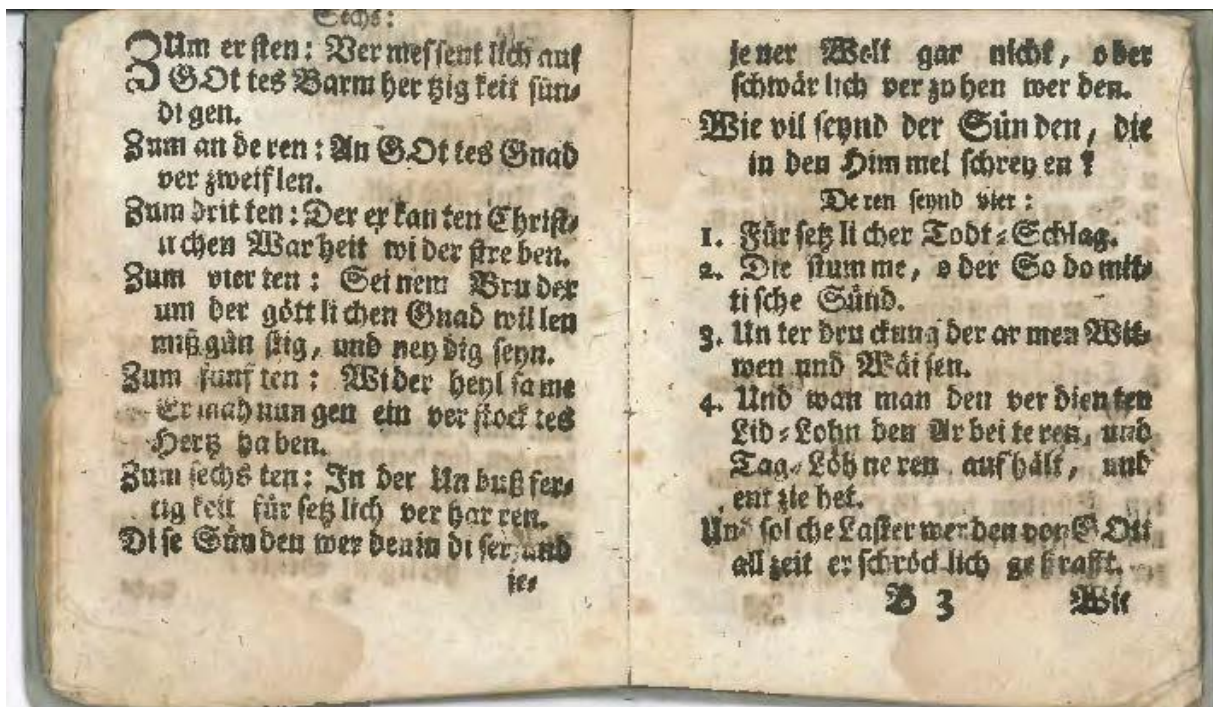 Sechs:
ZUm er sten: Ver messent lich auf
GOt tes Barm her tzig keit sün⸗
di gen.
Zum an de ren: An GOt tes Gnad
ver zweif len.
Zum drit ten: Der er kan ten Christ⸗
li chen War heit wi der stre ben.
Zum vier ten: Sei nem Bru der
um der gött li chen Gnad wil len
miß gün stig, und ney dig seyn.
Zum fünf ten: Wi der heyl sa me
Er mah nun gen ein ver stock tes
Hertz ha ben.
Zum sechs ten: In der Un buß fer⸗
tig keit für setz lich ver har ren.
Di se Sün den wer den in di ser, und
je⸗
je ner Welt gar nicht, o der
schwär lich ver zy hen wer den.
Wie vil seynd der Sün den, die
in den Him mel schrey en?
De ren seynd vier:
1. Für setz li cher Todt⸗Schlag.
2. Die stum me, o der So do mit⸗
ti sche Sünd.
3. Un ter dru ckung der ar men Wit⸗
wen und Wäi sen.
4. Und wan man den ver dien ten
Lid⸗Lohn den Ar bei te ren, und
Tag⸗Löh ne ren auf hält, und
ent zie het.
Und sol che Laster wer den von GOtt
all zeit er schröck lich ge strafft.
B 3 Wie